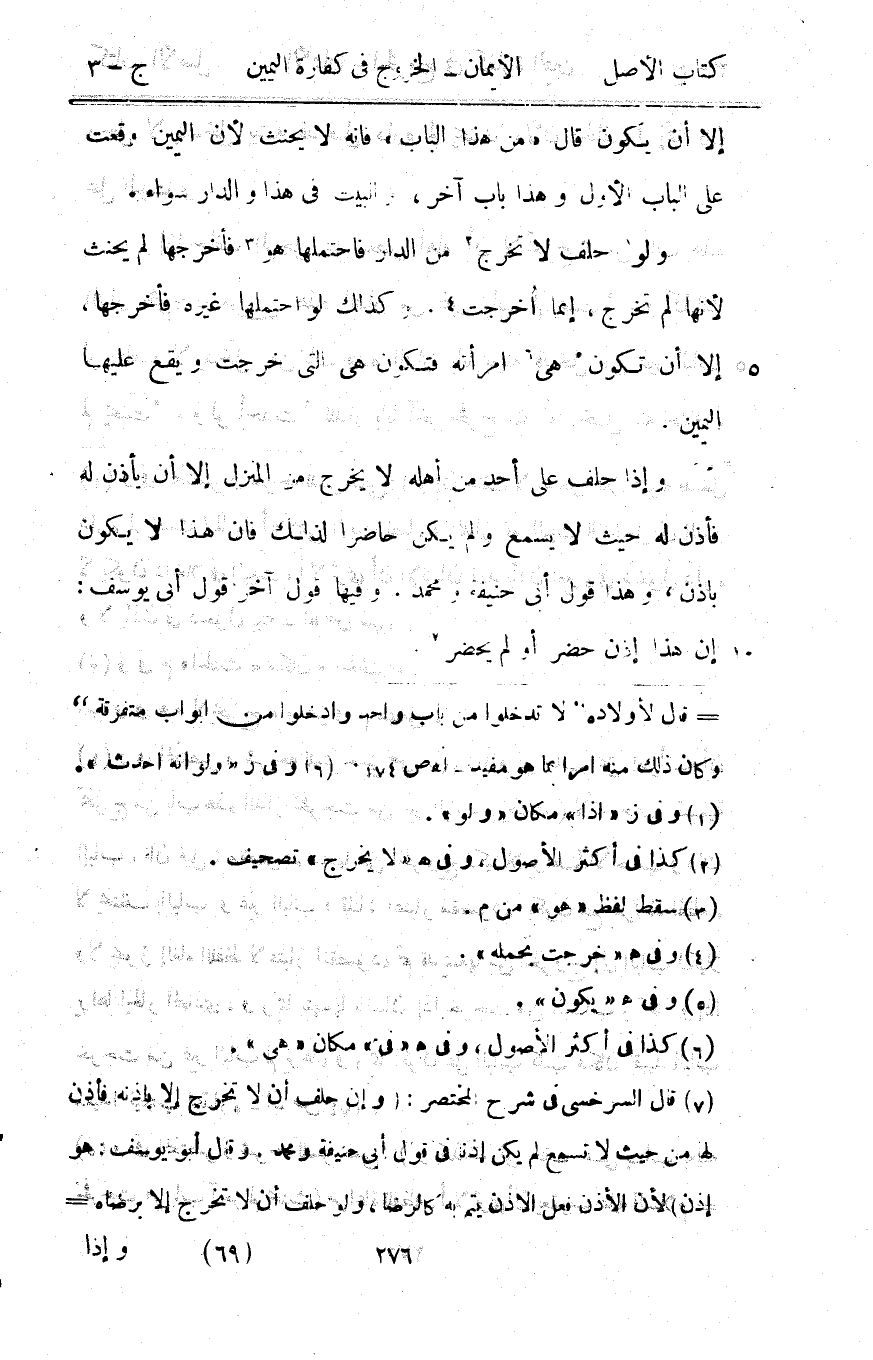 كتاب الأصل الأيمان - الخروج فى كفارة اليمين ج - ٣
إلا أن يكون قال «من هذا الباب» فانه لا يحنث لأن اليمين وقعت
على الباب الأول و هذا باب آخر، و البيت فى هذا و الدار سواء.
و لو١ حلف لا تخرج٢ من الدار فاحتملها هو٣ فأخرجها لم يحنث
لأنها لم تخرج، إنما أُخرجت٤. و كذلك لو احتملها غيره فأخرجها،
٥ إلا أن تكون٥ هى٦ امرأته فتكون هى التى خرجت و يقع عليها
اليمين.
و إذا حلف على أحد من أهله لا يخرج من المنزل إلا أن يأذن له
فأذن له حيث لا يسمع ولم يكن حاضرا لذلك فان هذا لا يكون
باذن، و هذا قول أبى حنيفة و محمد. و فيها قول آخر قول أبى يوسف:
١٠ إن هذا إذن حضر أو لم يحضر٧.
= قال لأولاده "لا تدخلوا من باب واحد وادخلوا من ابواب متفرقة"
وكان ذلك منه امرا بما هو مفيد - اه ص ١٧٤. (٦) و فى ز «ولو انه احدث».
(١) و فى ز «اذا» مكان «و لو».
(٢) كذا فى أكثر الأصول، و فى ه «لا يخرج» تصحيف.
(٣) سقط لفظ «هو» من م.
(٤) و فى ه «خرجت بحمله».
(٥) و فى ه «يكون».
(٦) كذا فى أكثر الأصول، و فى ه «فى» مكان «هى».
(٧) قال السرخسى فى شرح المختصر: (و إن حلف أن لا تخرج إلا باذنه فأذن
لها من حيث لا تسمع لم يكن إذنا فى قول أبى حنيفة و محمد. و قال أبو يوسف: هو
إذن) لأن الأذن فعل الاذن يتم به كالرضا، و لو حلف أن لا تخرج إلا برضاه =
٢٧٦ (٦٩) و إذا